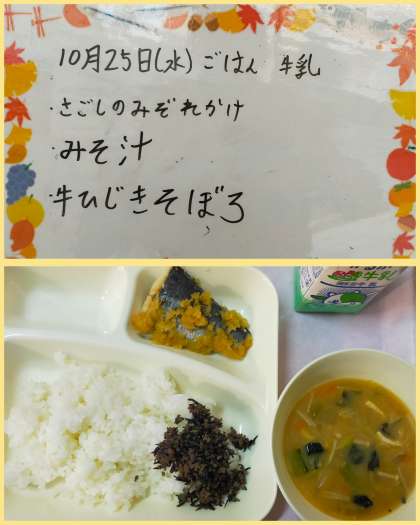 10月25日(水) ごはん 牛乳
・さごしのみぞれかけ
・みそ汁
・牛ひじきそぼろ
牛乳